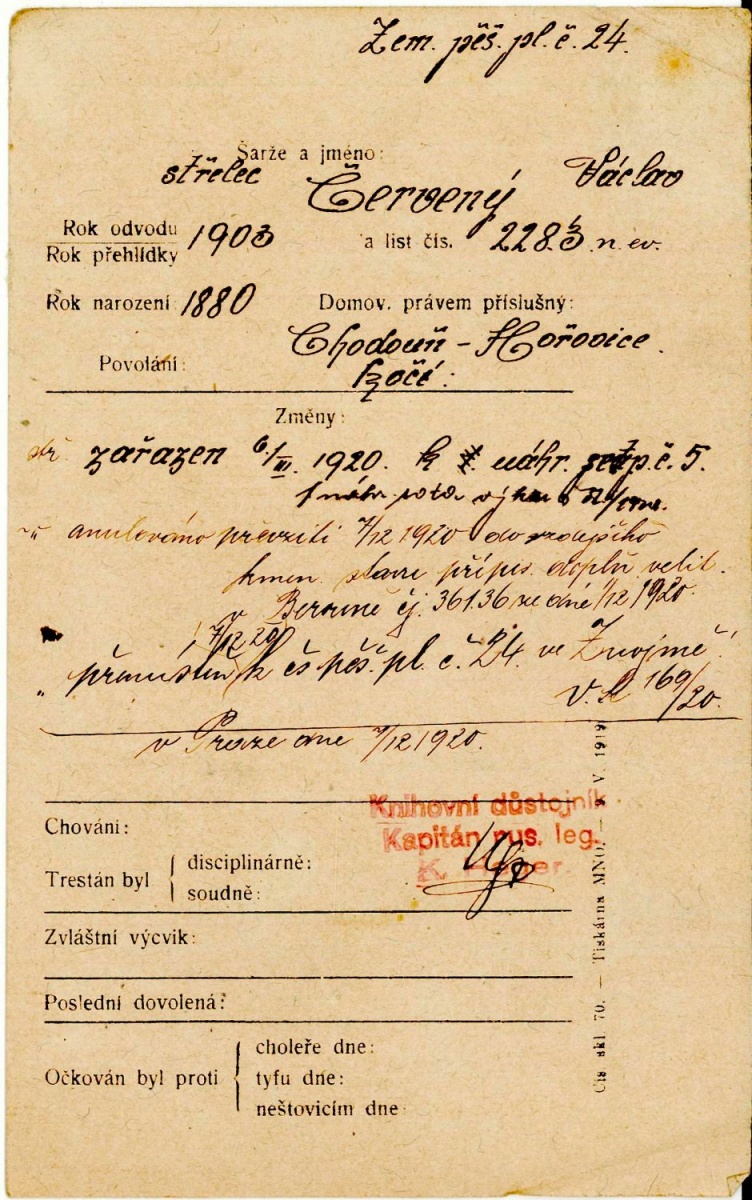 Zem. pěš. pl. č. 24.
Šarže a jméno:
střelec Červený Václav
Rok odvodu
Rok přehlídky 1903 a list čís. 2283 n. ev.
Rok narození: 1880 Domov. právem příslušný:
Chodouň - Hořovice.
Povolání: kočí:
Změny:
zařazen 6./III. 1920. k náhr. p. č. 5.
náhr. rota
anulováno převzetí 7/12 1920 do zdejšího
kmen. stavu přípis. doplň. velit.
v Berouně čj. 36136 ze dne 1/12 1920.
7/12 20
" přemístěn k čs pěš. pl. č. 24. ve Znojmě.
169/20.
v Praze dne 7/12 1920.
Knihovní důstojník
Kapitán rus. leg.
K.
Chování:
Trestán byl
disciplinárně:
soudně:
Zvláštní výcvik:
Poslední dovolená:
Očkován byl proti
choleře dne:
tyfu dne:
neštovicím dne:
Čís skl. 70. — Tiskárna MNO. — V. 1919